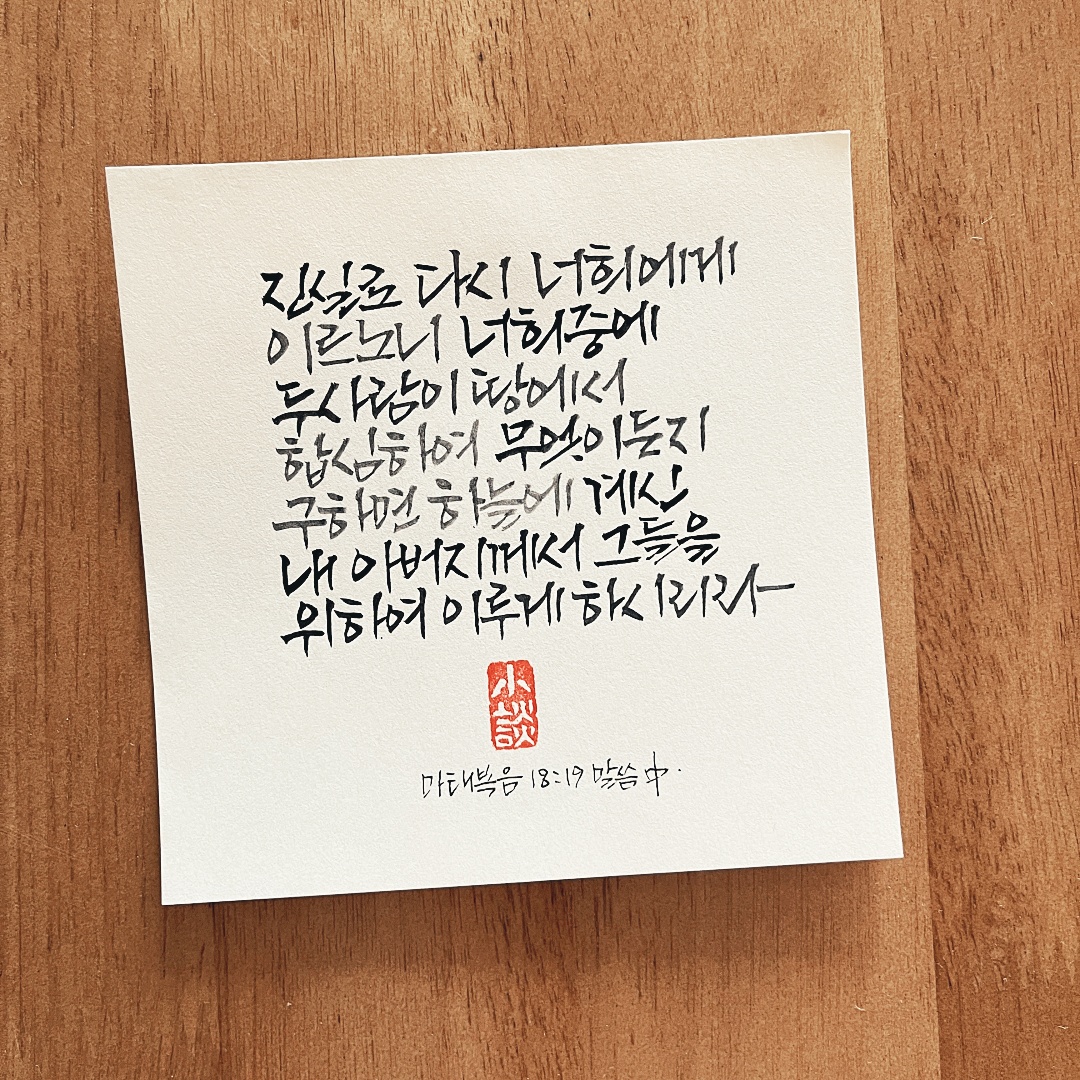 진실로 다시 너희에게
이르노니 너희중에
두사람이 땅에서
합심하여 무엇이든지
구하면 하늘에 계신
내 아버지께서 그들을
위하여 이루게 하시리라
小談
마태복음 18:19 말씀 中.